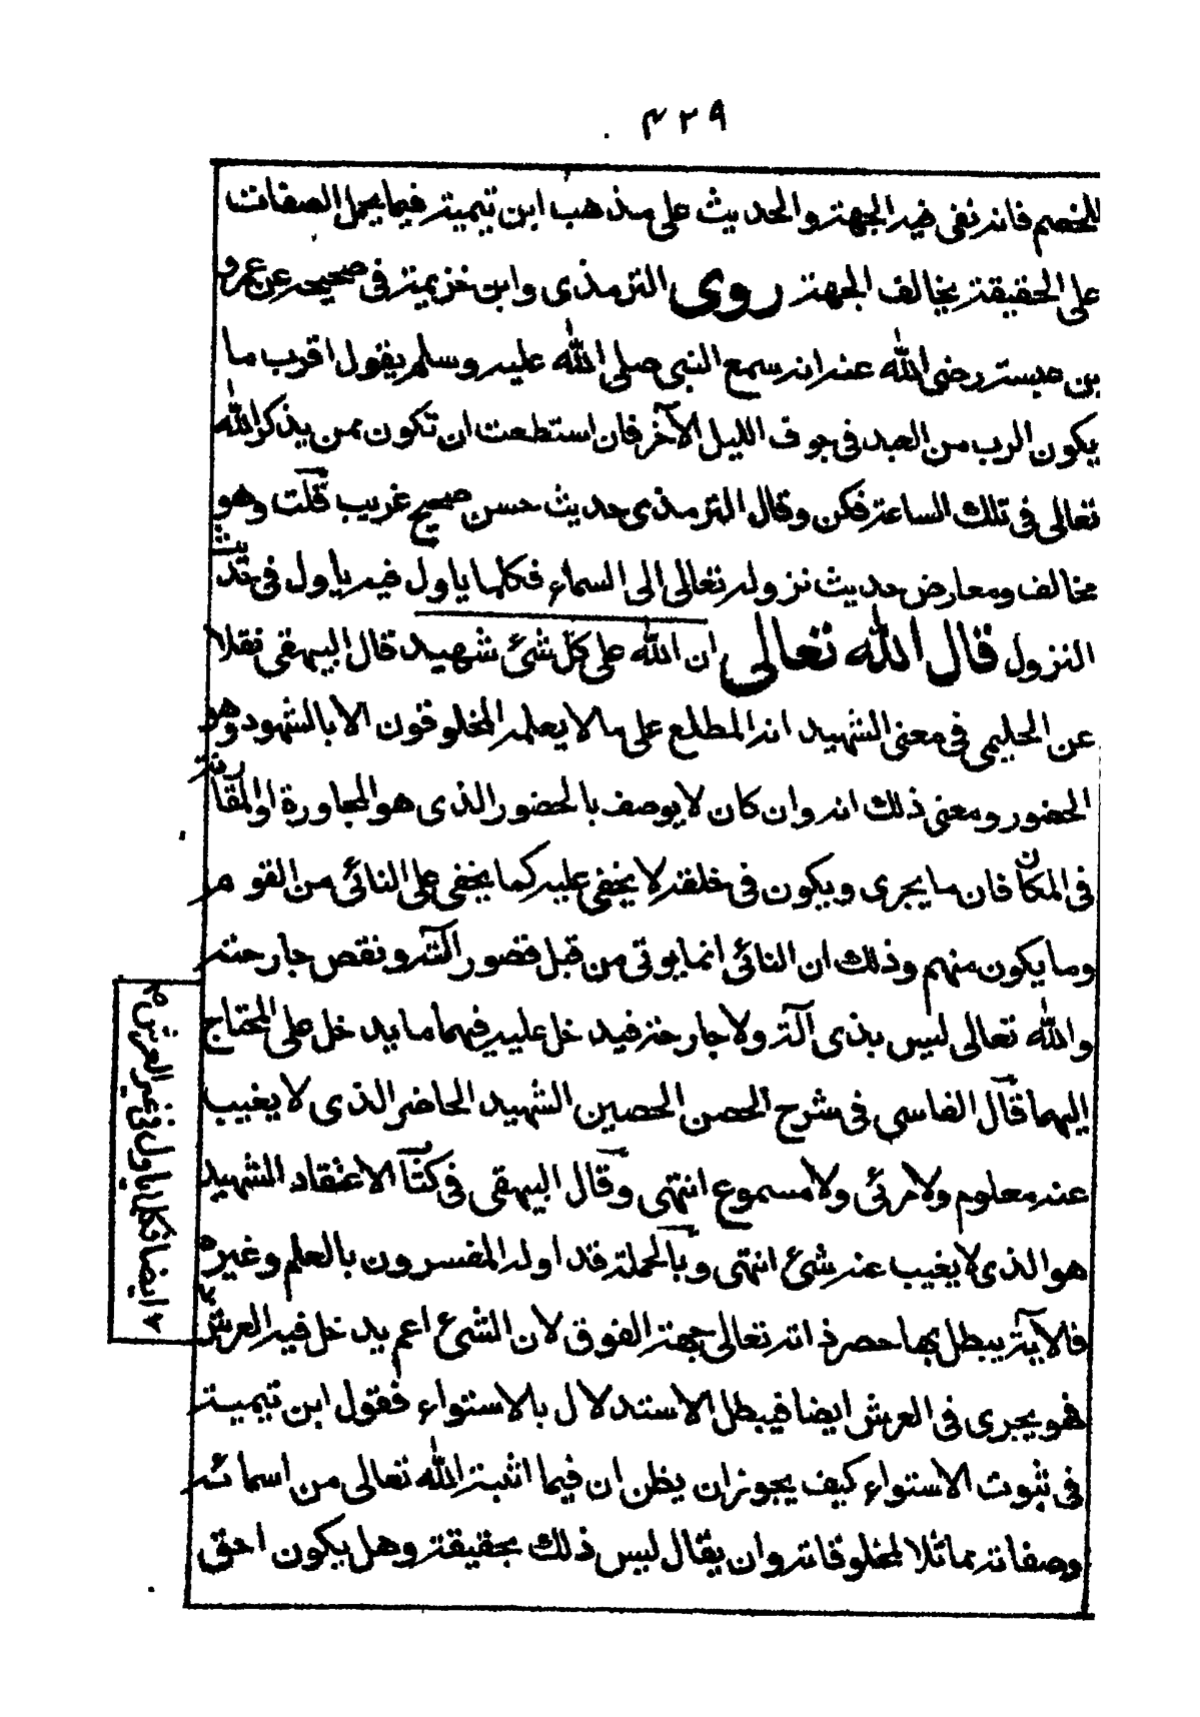 ٤٢٩
للخصم فانه نفى فيه الجهة والحديث على مذهب ابن تيمية فيما يحمل الصفات
على الحقيقة يخالف الجهة روى الترمذى وابن خزيمة فى صحيحه عن عمرو
بن عبسة رضى الله عنه انه سمع النبى صلى الله عليه وسلم يقول اقرب ما
يكون الرب من العبد فى جوف الليل الآخر فان استطعت ان تكون ممن يذكر الله
تعالى فى تلك الساعة فكن وقال الترمذى حديث حسن صحيح غريب قلت وهو
مخالف ومعارض حديث نزوله تعالى الى السماء فكلما ياول فيه ياول فى حديث
النزول قال الله تعالى ان الله على كل شئ شهيد قال البيهقى نقلا
عن الحليمى فى معنى الشهيد انه المطلع على ما لا يعلمه المخلوقون الا بالشهود وهو
الحضور ومعنى ذلك انه وان كان لا يوصف بالحضور الذى هو المجاورة او المقاربة
فى المكان فان ما يجرى ويكون فى خلقه لا يخفى عليه كما يخفى على النائى من القوم
وما يكون منهم وذلك ان النائى انما يوتى من قبل قصور آلته ونقص جارحته
والله تعالى ليس بذى آلة ولا جارحة فيدخل عليه فيهما ما يدخل على المحتاج
اليهما قال الفاسى فى شرح الحصن الحصين الشهيد الحاضر الذى لا يغيب
عنه معلوم ولا مرئى ولا مسموع انتهى وقال البيهقى فى كتاب الاعتقاد الشهيد
هو الذى لا يغيب عنه شئ انتهى وبالجملة فقد اوله المفسرون بالعلم وغيره
فالآية يبطل بها حصر ذاته تعالى جهة الفوق لان الشئ اعم يدخل فيه العرش
فهو يجرى فى العرش ايضا فيبطل الاستدلال بالاستواء فقول ابن تيمية
فى ثبوت الاستواء كيف يجوز ان يظن ان فيما اثبته الله تعالى من اسمائه
وصفاته مماثلا لمخلوقاته وان يقال ليس ذلك بحقيقة وهل يكون احق
ايضا فكلما ياول فى غير العرش